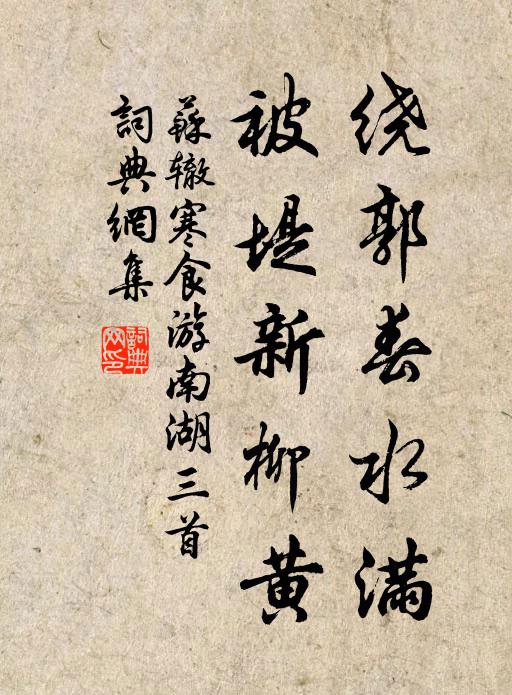 绕郭春水满
被堤新柳黄
蘇辙寒食游南湖三首
詞典網集
詞典
网印